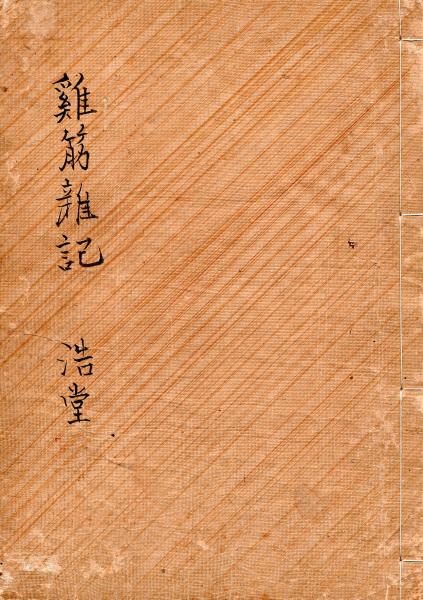 雞筋雜記 浩堂